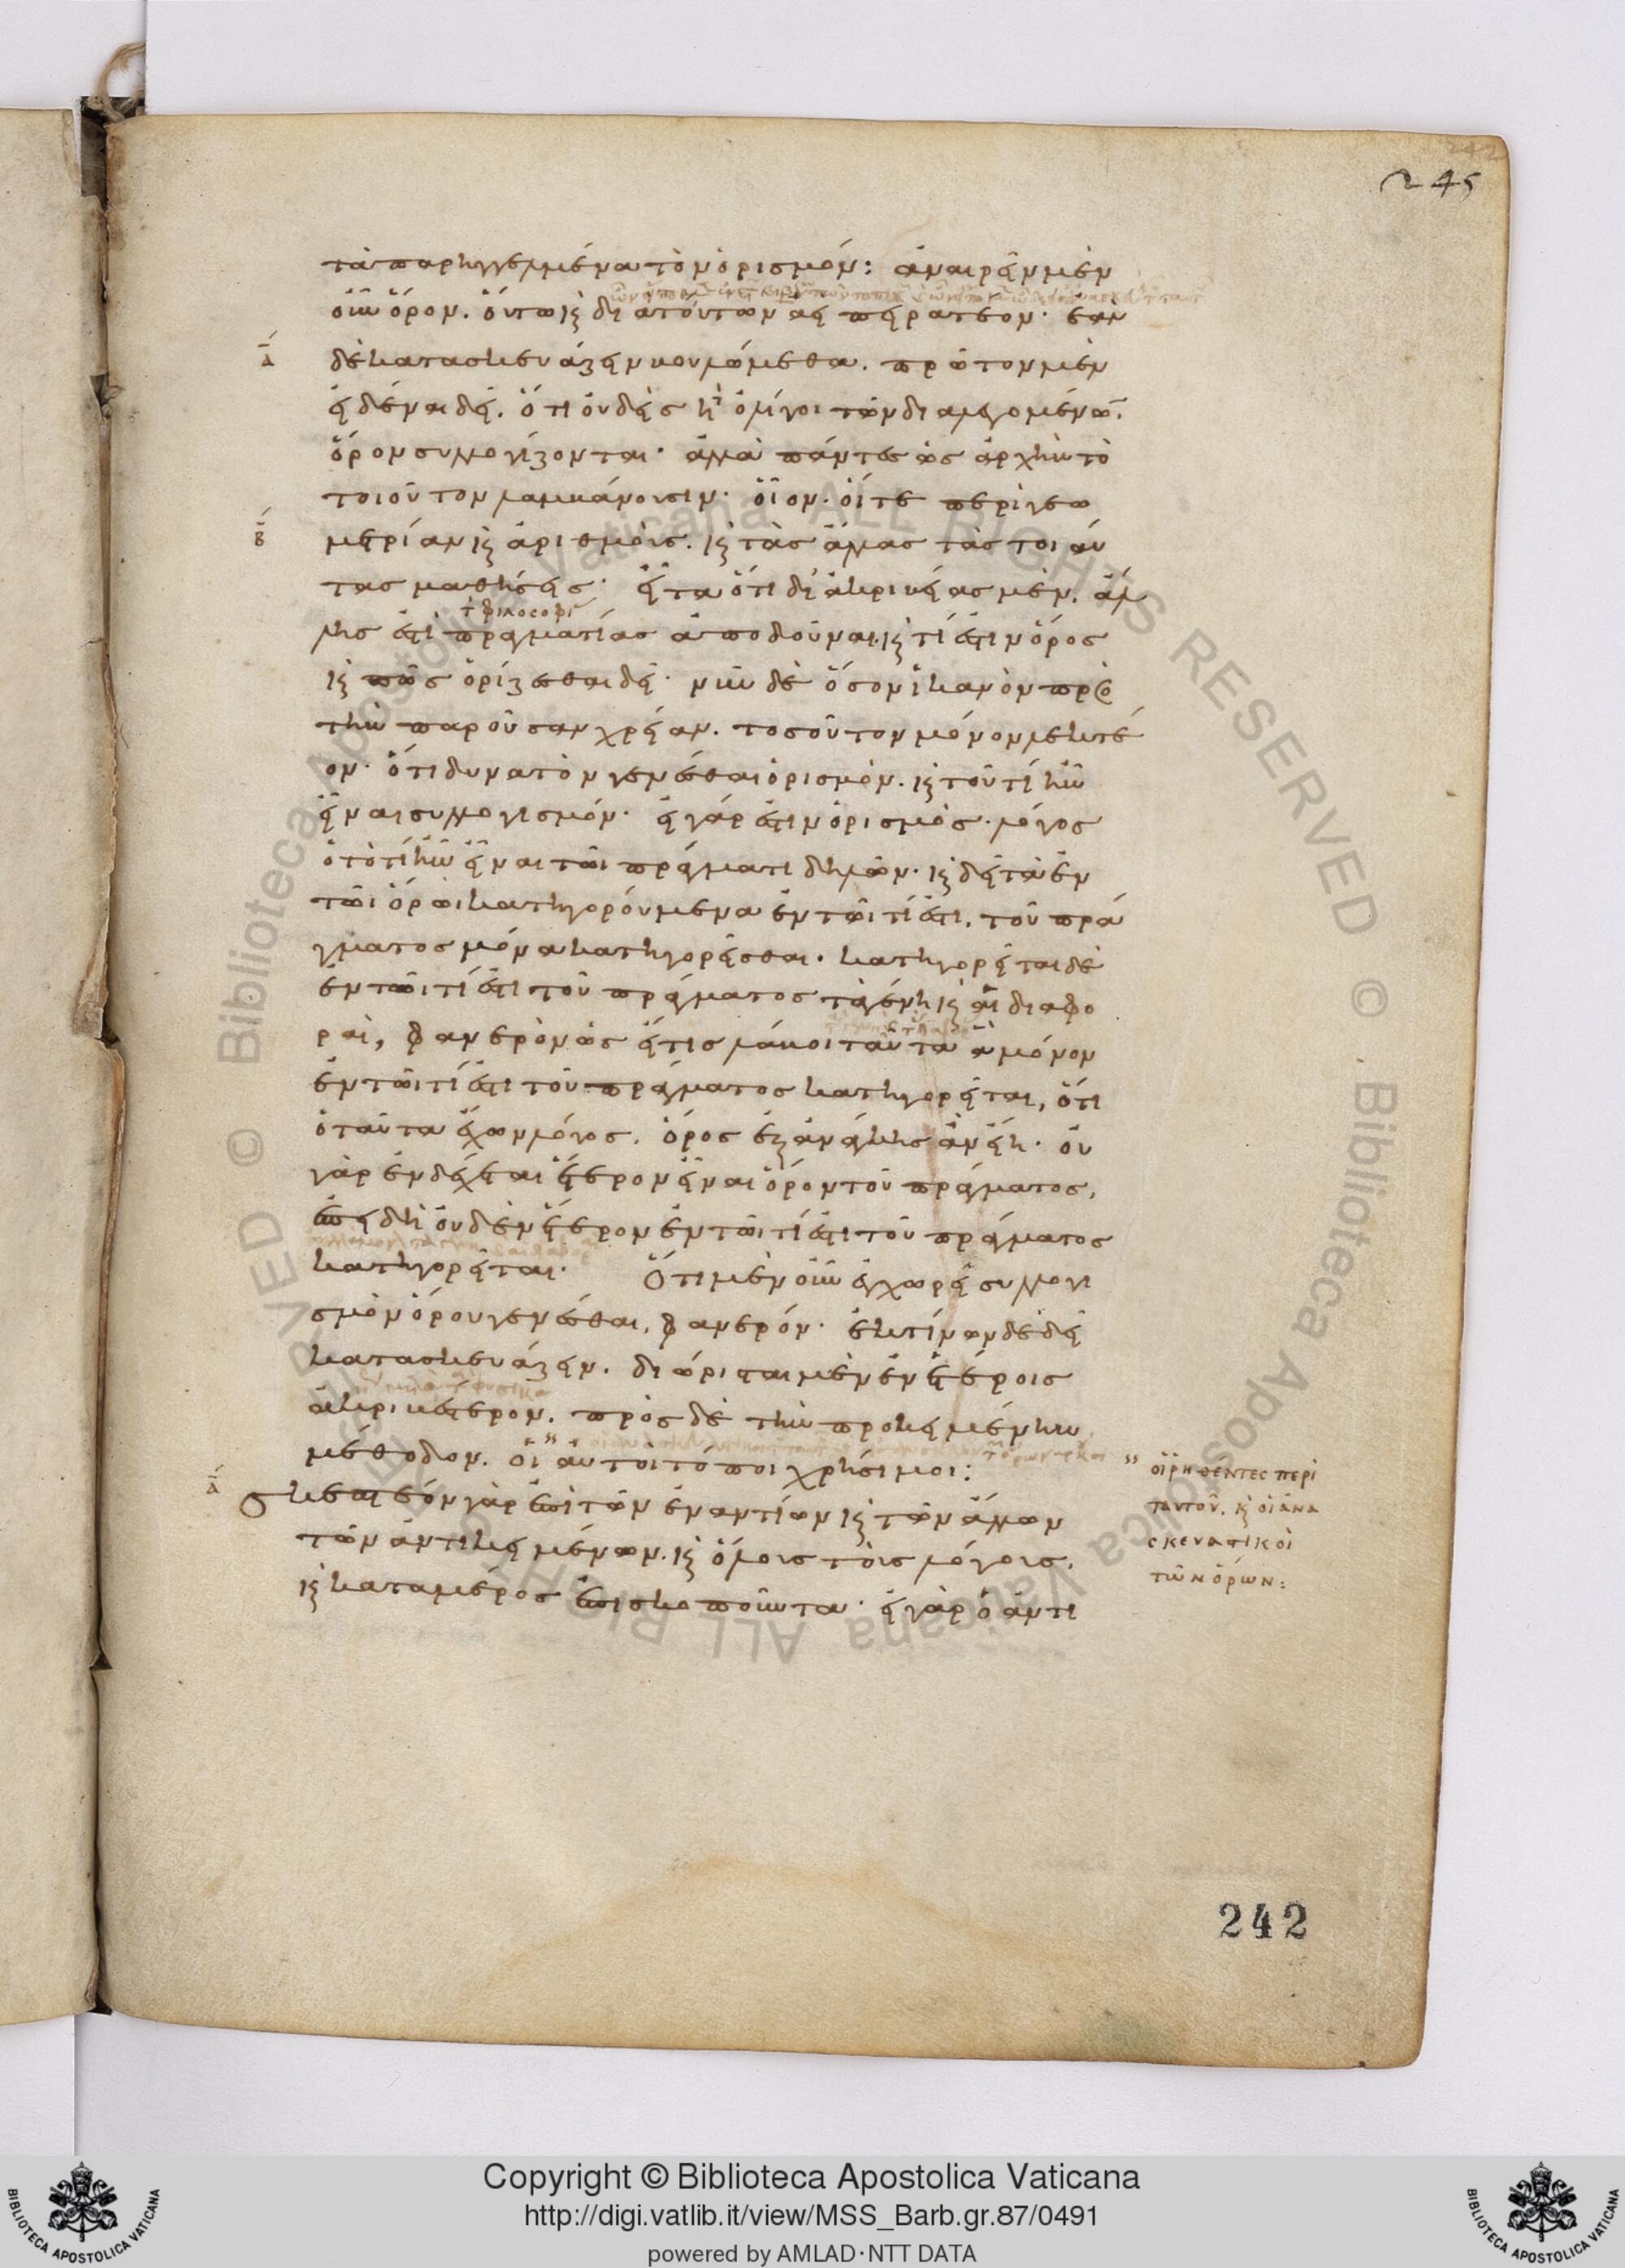 245
τὰ παρηγγελμένα τὸν ὁρισμόν: ἀναιρεῖν μὲν
οὖν ὅρον. οὕτω καὶ διὰ τούτων ἀεὶ πειρατέον· ἐὰν
ᾱ
δὲ κατασκευάζειν βουλώμεθα. πρῶτον μὲν
εἰδέναι δεῖ. ὅτι οὐδεὶς ἢ ὀλίγοι τῶν διαλεγομένων.
ὅρον συλλογίζονται· ἀλλὰ πάντες ὡς ἀρχὴν τὸ
τοιοῦτον λαμβάνουσιν· οἷον. οἵ τε περὶ γεω
β̄
μετρίαν καὶ ἀριθμοὺς. καὶ τὰς ἄλλας τὰς τοιαύ
τας μαθήσεις· εἶτα ὅτι δι' ἀκριβείας μὲν. ἄλ
τ φιλοσοφι
λης ἐστὶ πραγματείας ἀποδοῦναι. καὶ τί ἐστιν ὅρος
καὶ πῶς ὁρίζεσθαι δεῖ· νῦν δὲ ὅσον ἱκανὸν πρὸς
τὴν παροῦσαν χρείαν. τοσοῦτον μόνον λεκτέ
ον· ὅτι δυνατὸν γενέσθαι ὁρισμόν. καὶ τοῦ τί ἦν
εἶναι συλλογισμόν· εἰ γάρ ἐστιν ὁρισμὸς. λόγος
ὁ τὸ τί ἦν εἶναι τῶι πράγματι δηλῶν· καὶ δεῖ τὰ ἐν
τῶι ὅρωι κατηγορούμενα ἐν τῶι τί ἐστι. τοῦ πρά
γματος μόνα κατηγορεῖσθαι. κατηγορεῖται δὲ
ἐν τῶι τί ἐστι τοῦ πράγματος τὰ γένη καὶ αἱ διαφο
ραί, φανερὸν ὡς εἴ τις λάβοι ταῦτα ἃ μόνον
ἐν τῶι τί ἐστι τοῦ πράγματος κατηγορεῖται, ὅτι
ὁ ταῦτα ἔχων λόγος. ὅρος ἐξ ἀνάγκης ἂν εἴη· οὐ
γὰρ ἐνδέχεται ἕτερον εἶναι ὅρον τοῦ πράγματος,
ἐπειδὴ οὐδὲν ἕτερον ἐν τῶι τί ἐστι τοῦ πράγματος
κατηγορεῖται· Ὅτι μὲν οὖν ἐγχωρεῖ συλλογι
σμὸν ὅρου γενέσθαι, φανερόν· ἐκ τίνων δὲ δεῖ
κατασκευάζειν. διώρισται μὲν ἐν ἑτέροις
ἀκριβέστερον. πρὸς δὲ τὴν προκειμένην
μέθοδον. οἱ " αὐτοὶ τόποι χρήσιμοι:
ᾱ
Σκεπτέον γὰρ ἐπὶ τῶν ἐναντίων καὶ τῶν ἄλλων
τῶν ἀντικειμένων. καὶ ὅλους τοὺς λόγους.
καὶ κατὰ μέρος ἐπισκοποῦντα· εἰ γὰρ ὁ ἀντι
" οἱ ῥηθέντες περὶ
ταυτοῦ. καὶ οἱ ἀνα
σκευαστικοὶ
τῶν ὅρων:
242
Copyright © Biblioteca Apostolica Vaticana
http://digi.vatlib.it/view/MSS_Barb.gr.87/0491
powered by AMLAD·NTT DATA
BIBLIOTECA APOSTOLICA VATICANA
BIBLIOTECA APOSTOLICA VATICANA